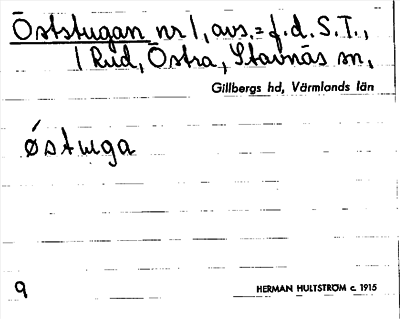 Öststugan nr 1, avs. = f.d. S.T.,
1 Rud, Östra, Stavnäs sn,
Gillbergs hd, Värmlands län
østuga
9
HERMAN HULTSTRÖM c. 1915